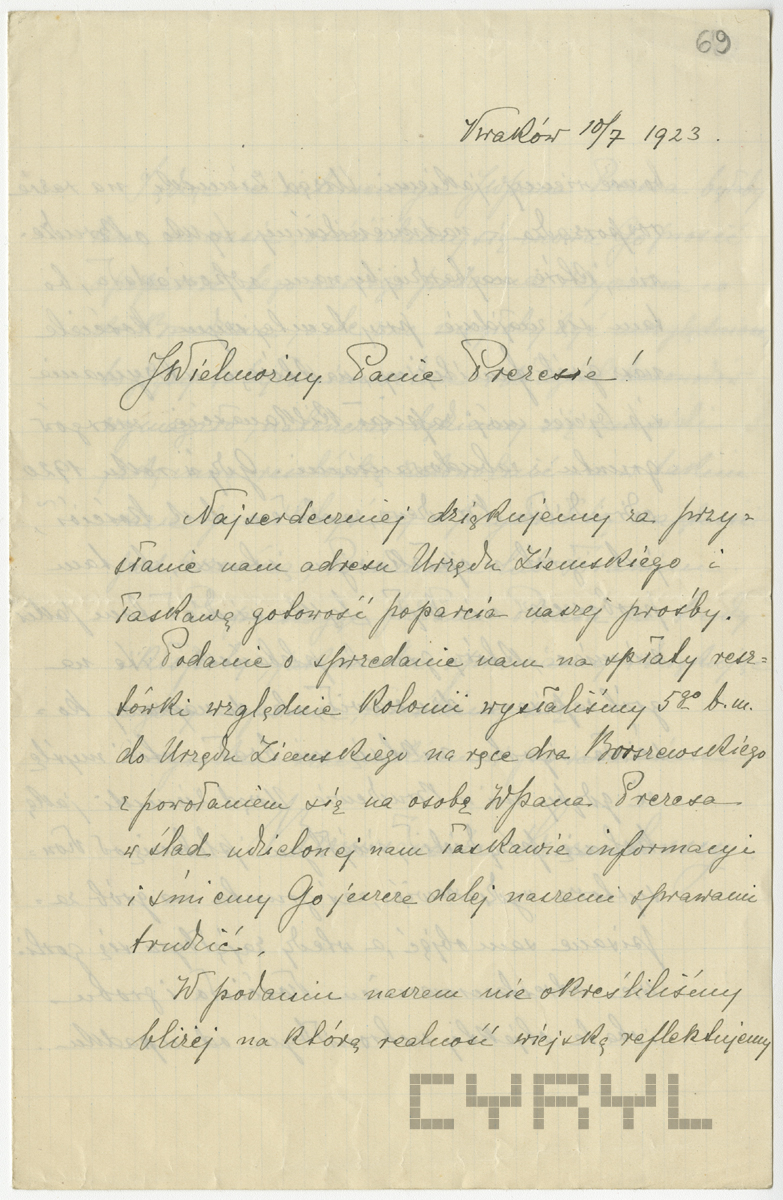 69
Kraków 10/7 1923.
JWielmożny Panie Prezesie!
Najserdeczniej dziękujemy za przy=
słanie nam adresu Urzędu Ziemskiego i
łaskawą gotowość poparcia naszej prośby.
Podanie o sprzedanie nam na spłaty resz=
tówki względnie Kolonii wysłaliśmy 5go b.m.
do Urzędu Ziemskiego na ręce dra Borszewskiego
z powołaniem się na osobę WPana Prezesa
w ślad udzielonej nam łaskawie informacyi
i śmiemy Go jeszcze dalej naszemi sprawami
trudzić.
W podaniu naszem nie określiliśmy
bliżej na którą realność wiejską reflektujemy
CYRYL